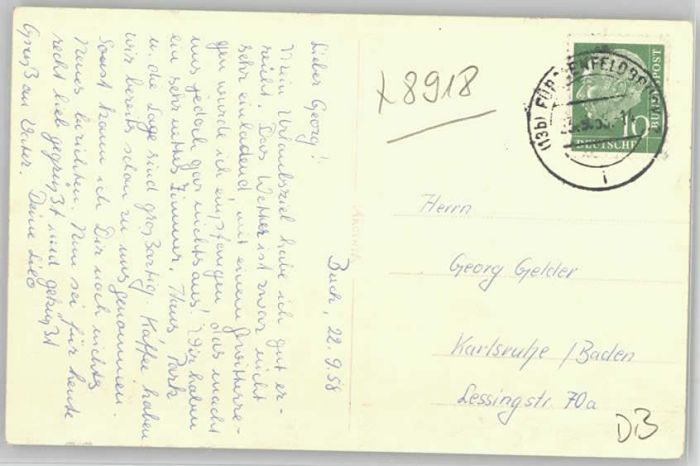 Buch, 22.9.58
Lieber Georg!
Mein Urlaubsziel habe ich gut er-
reicht. Das Wetter ist zwar nicht
sehr einladend, mit einem Gewitterre-
gen wurde ich empfangen, das macht
uns jedoch gar nichts aus. Wir haben
ein sehr nettes Zimmer. Haus, Park
u. die Lage sind großartig. Kaffee haben
wir bereits schon zu uns genommen.
Sonst kann ich Dir noch nichts
Neues berichten. Nun sei für heute
recht lieb gegrüßt und geküßt
Deine Lilo
Gruß an Vater.
x8918
(13b) FÜRSTENFELDBRUCK
i
10
DEUTSCHE
BUNDESPOST
Herrn
Georg Gelder
Karlsruhe / Baden
Lessingstr. 70a
DB